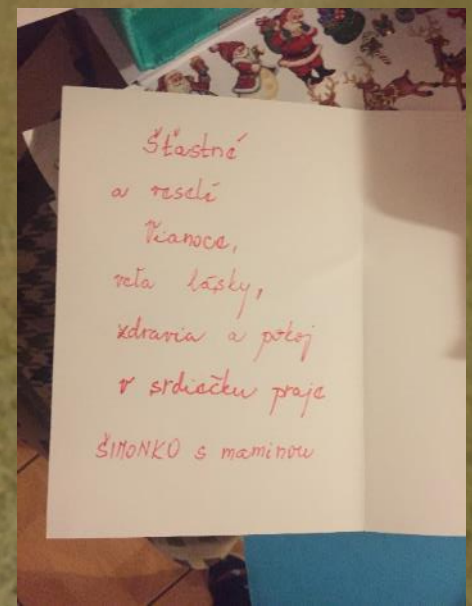 Šťastné
a veselé
Vianoce,
veľa lásky,
zdravia a pokoj
v srdiečku praje
ŠIMONKO s maminou